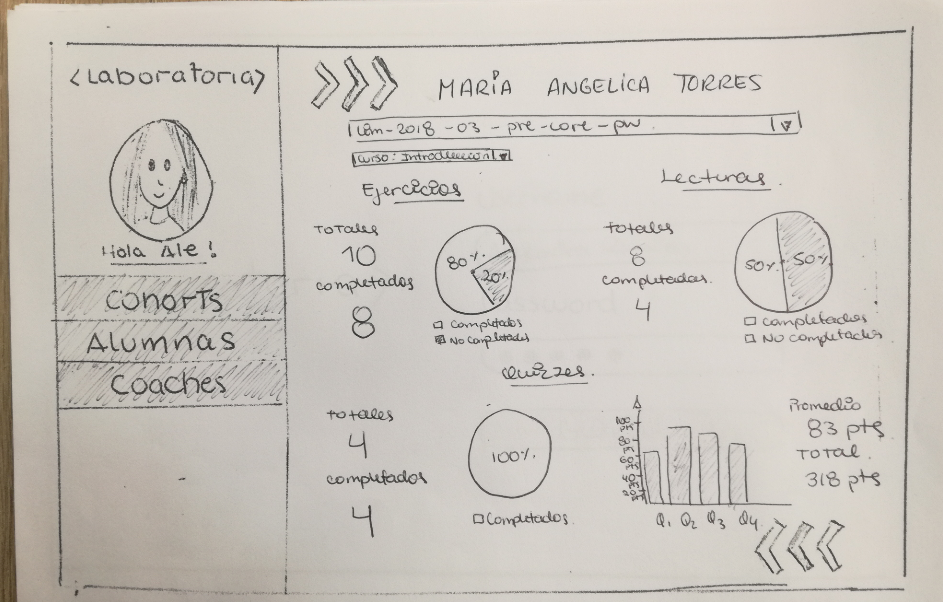 <Laboratoria>
Hola Ale!
Cohorts
Alumnas
Coaches
MARIA ANGELICA TORRES
lim-2018-03-pre-core-pw
curso: Introduccion
Ejercicios
TOTALES
10
completados
8
80%
20%
Completados
No completados
Lecturas
totales
8
completadas
4
50%
50%
completados
No completados
Quizzes
totales
4
completados
4
100%
Completados
Q1 Q2 Q3 Q4
Promedio
83 pts
TOTAL
318 pts